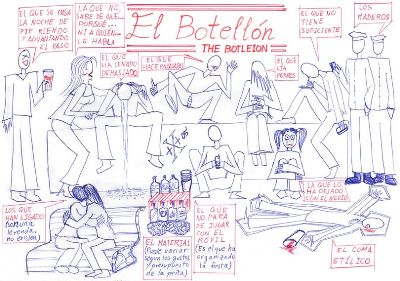 EL QUE SE PASA
LA NOCHE DE
PIE RIENDO
Y AGUANTANDO
EL VASO
LA QUE NO
SABE DE QUE...
PORQUE...
NI A QUIEN...
LE HABLA
El Botellón
THE BOTLEION
EL QUE
NO TIENE
SUFICIENTE
LOS
MADEROS
EL QUE
HA CENADO
DEMASIADO
EL QUE
HACE POSTURAS
EL QUE
LIA
PORROS
LA QUE LO
HA DEJADO
CON EL NOVIO
LOS QUE
HAN LIGADO
(según la
leyenda,
no existen)
EL MATERIAL
(Puede variar
según los gustos
y presupuesto
de la peña)
EL QUE
NO PARA
DE JUGAR
CON EL
MOVIL
(Es el que ha
organizado
la fiesta)
EL COMA
ETÍLICO